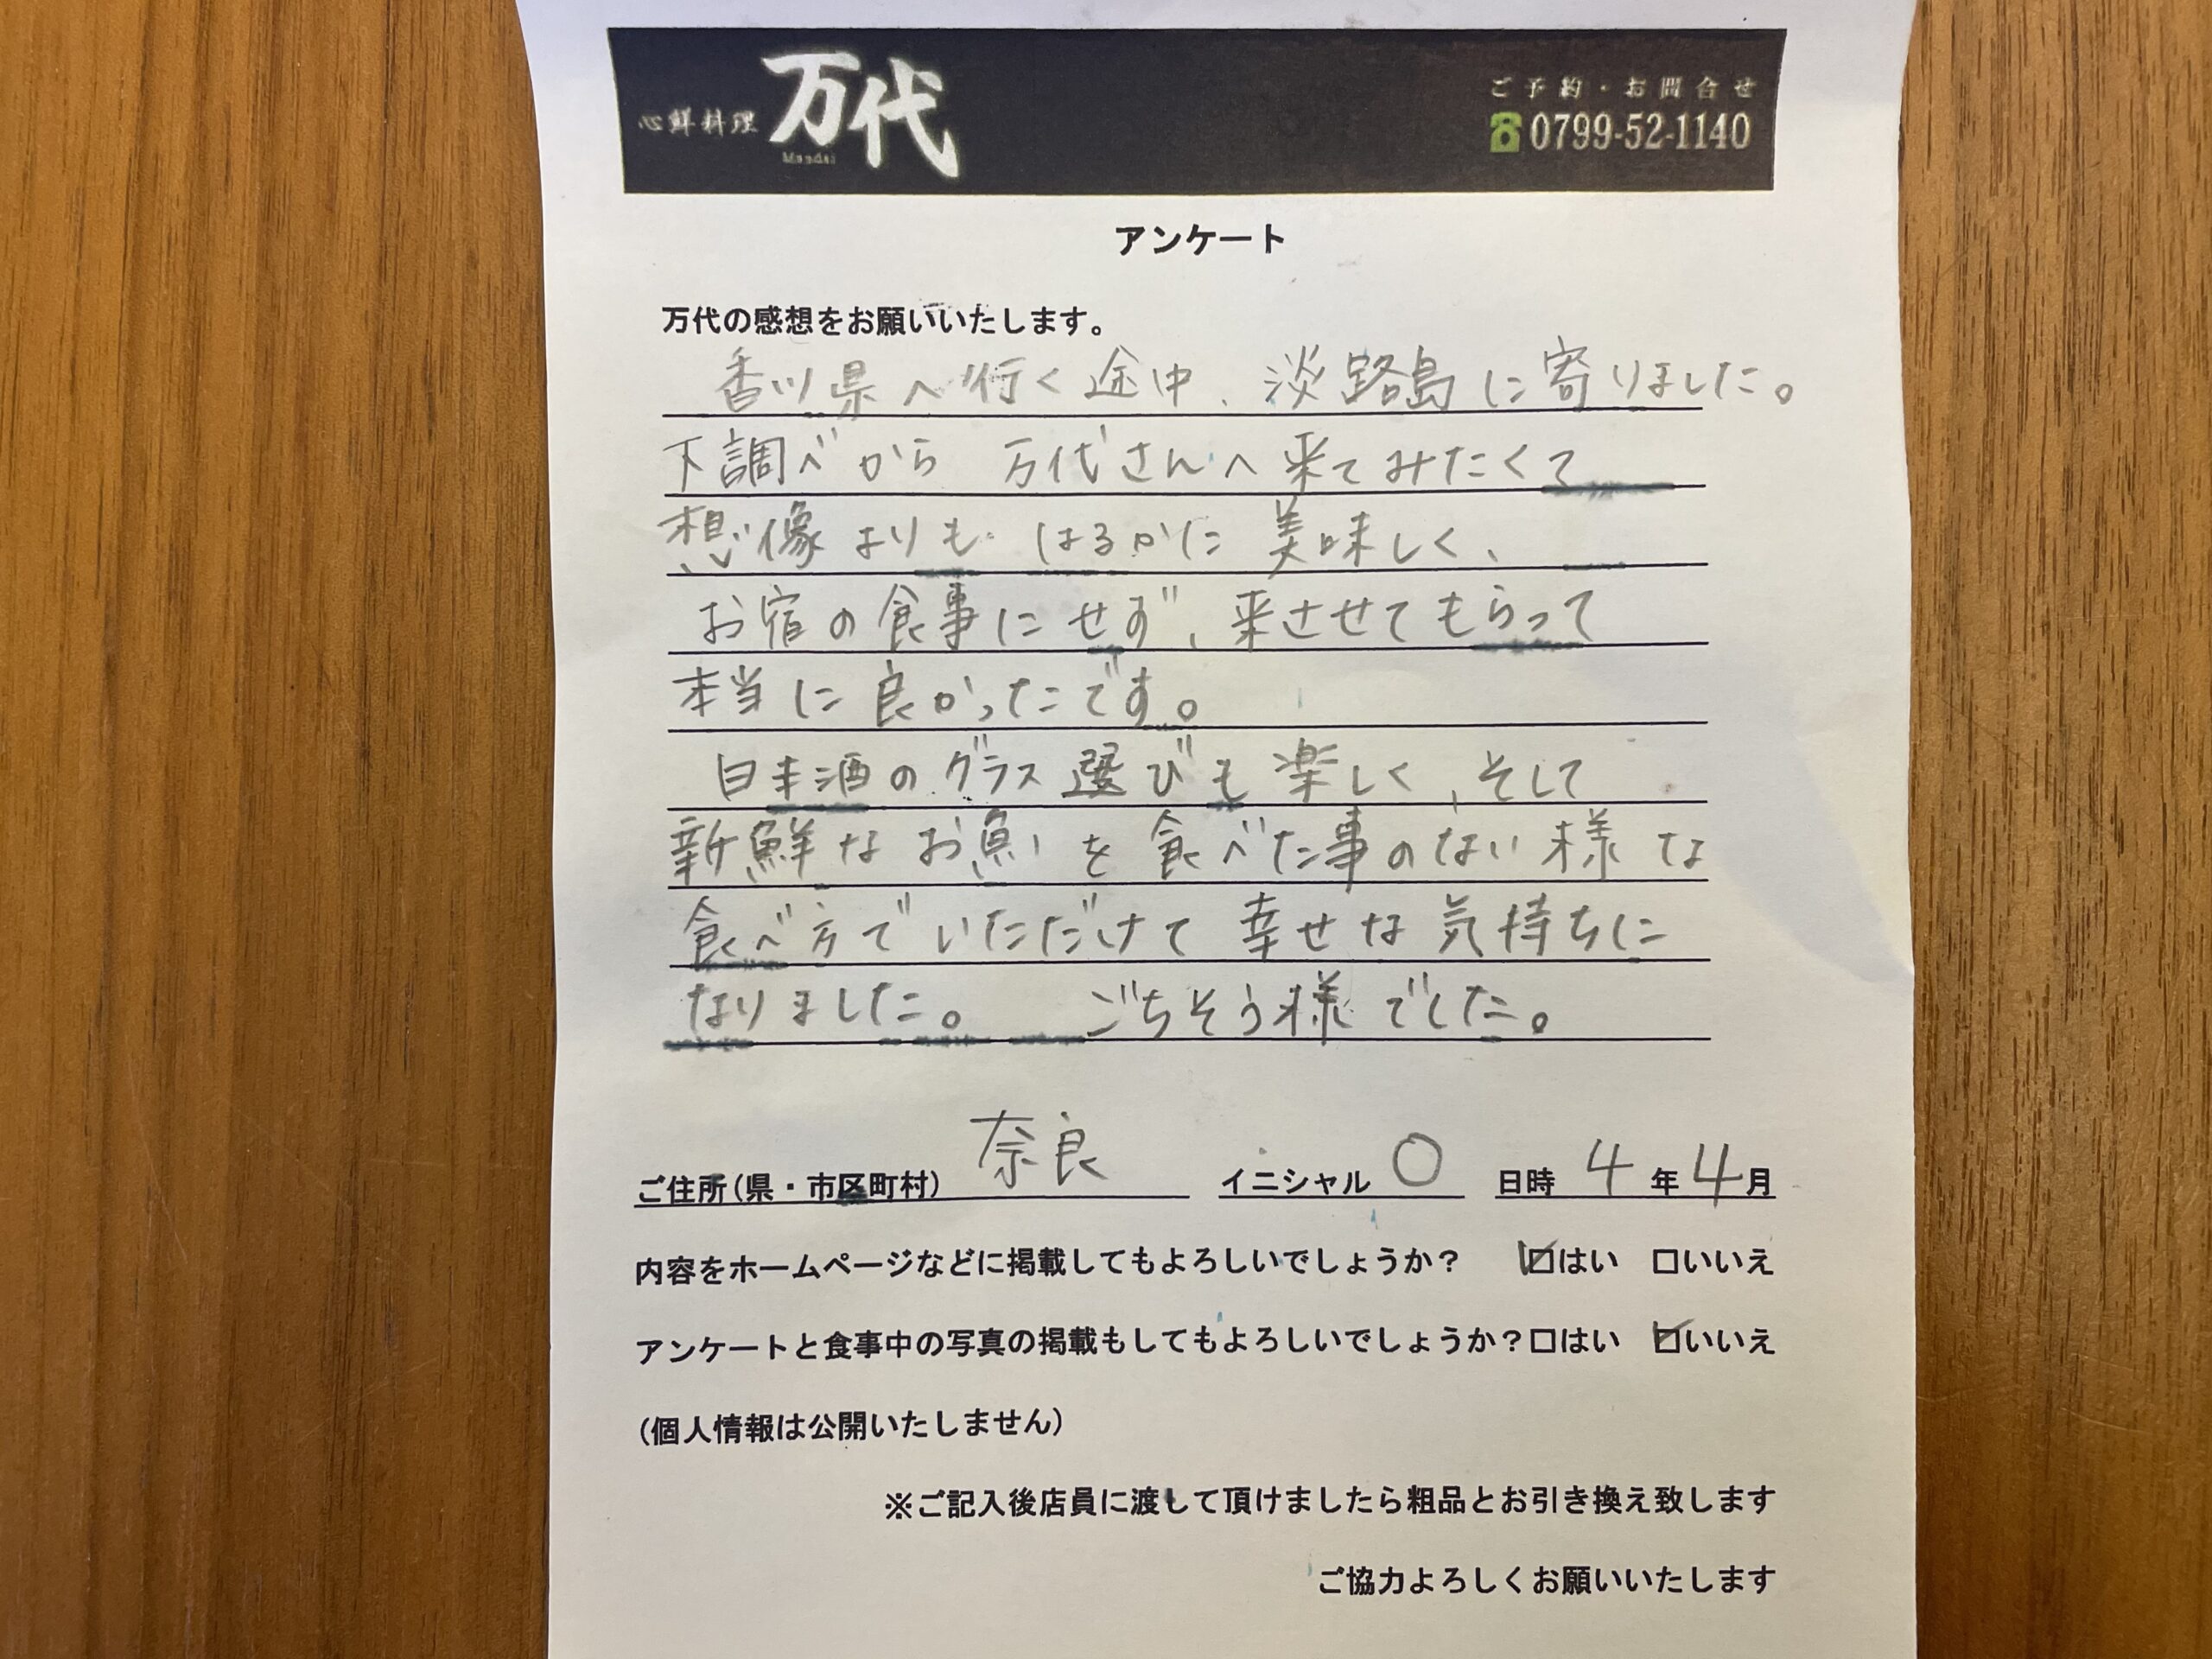 心鮮料理 万代
Mandai
ご予約・お問合せ
☎0799-52-1140
アンケート
万代の感想をお願いいたします。
香川県へ行く途中、淡路島に寄りました。
下調べから 万代さんへ来てみたくて
想像よりも はるかに 美味しく、
お宿の食事にせず、来させてもらって
本当に良かったです。
日本酒のグラス選びも楽しく、そして
新鮮なお魚いを食べた事のない様な
食べ方でいただけて幸せな気持ちに
なりました。 ごちそう様でした。
ご住所(県・市区町村) 奈良 イニシャル O 日時 4年4月
内容をホームページなどに掲載してもよろしいでしょうか? ☑はい □いいえ
アンケートと食事中の写真の掲載もしてもよろしいでしょうか?□はい ☑いいえ
(個人情報は公開いたしません)
※ご記入後店員に渡して頂けましたら粗品とお引き換え致します
ご協力よろしくお願いいたします